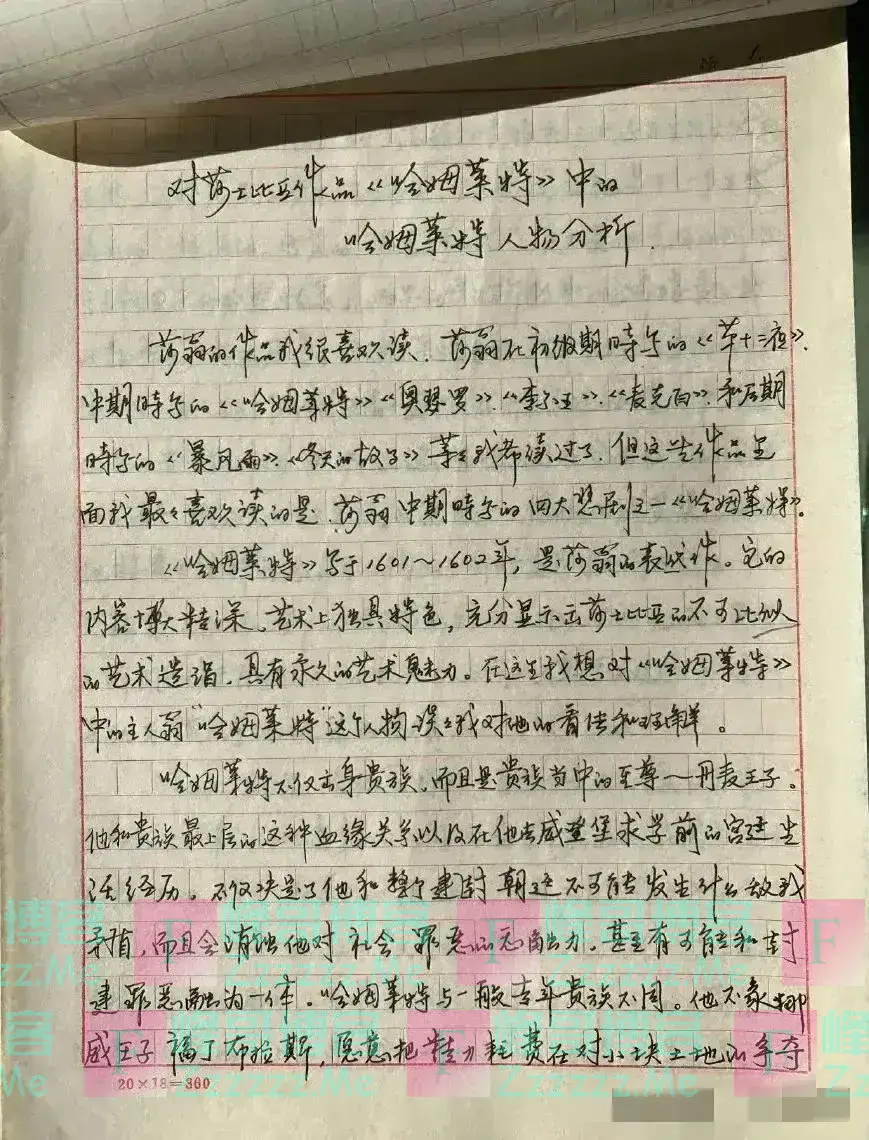 对莎士比亚作品《哈姆莱特》中的
哈姆莱特人物分析.
莎翁的作品我很喜欢读.莎翁在初级期时写的《第十二夜》.
中期时写的《哈姆莱特》《奥瑟罗》.《李尔王》.《麦克白》.和后期
时写的《暴风雨》.《冬天的故事》等等我都读过了.但这些作品里
面我最最喜欢读的是.莎翁中期时写的四大悲剧之一《哈姆莱特》.
《哈姆莱特》写于1601~1602年,是莎翁的代表作。它的
内容博大精深.艺术上独具特色,充分显示出莎士比亚的不可比似
的艺术造诣.具有永久的艺术魅力。在这里我想对《哈姆莱特》
中的主人翁"哈姆莱特"这个人物谈谈我对他的看法和理解。
哈姆莱特不仅出身贵族.而且是贵族当中的至尊—丹麦王子。
他和贵族最上层的这种血缘关系以及在他去威登堡求学前的宫廷生
活经历.不仅决定了他和整个封建朝廷不可能发生什么敌我
矛盾,而且会消蚀他对社会罪恶的 力.甚至有可能和封
建罪恶融为一体。哈姆莱特与一般青年贵族不同。他不象挪
威王子福丁布拉斯,愿意把精力耗费在对小块土地的争夺
20×18=360
峰博客
Zzzzzz.Me
F